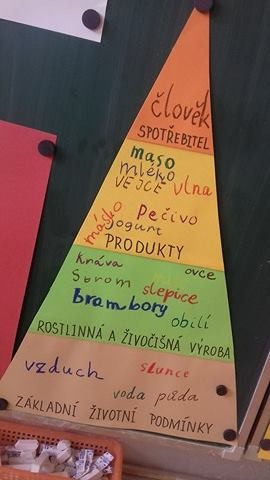 člověk
SPOTŘEBITEL
maso
mléko
VEJCE vlna
máslo Pečivo
jogurt
PRODUKTY
kráva ovce
Strom slepice
brambory
obilí
ROSTLINNÁ A ŽIVOČIŠNÁ VÝROBA
vzduch slunce
voda půda
ZÁKLADNÍ ŽIVOTNÍ PODMÍNKY